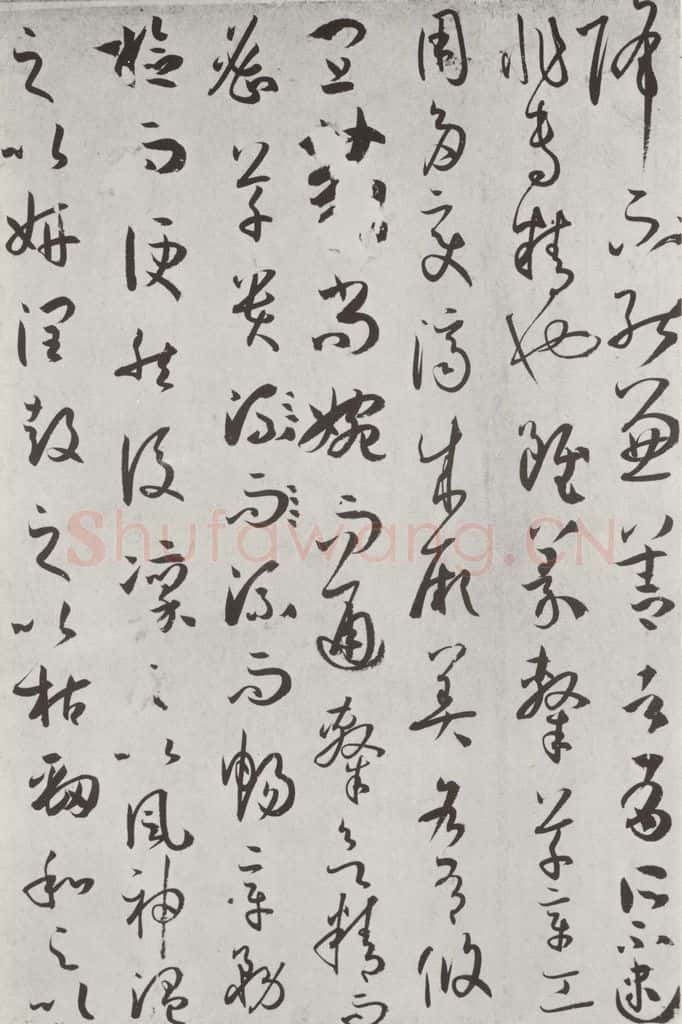 降不能兼善者有所不逮
非專精也雖篆隸草章工
用多變濟成厥美各有攸
宜篆尚婉而通隸欲精而
密草貴流而流而暢章務
檢而便然後凜之以風神溫
之以妍潤鼓之以枯勁和之以
Shufawang.CN